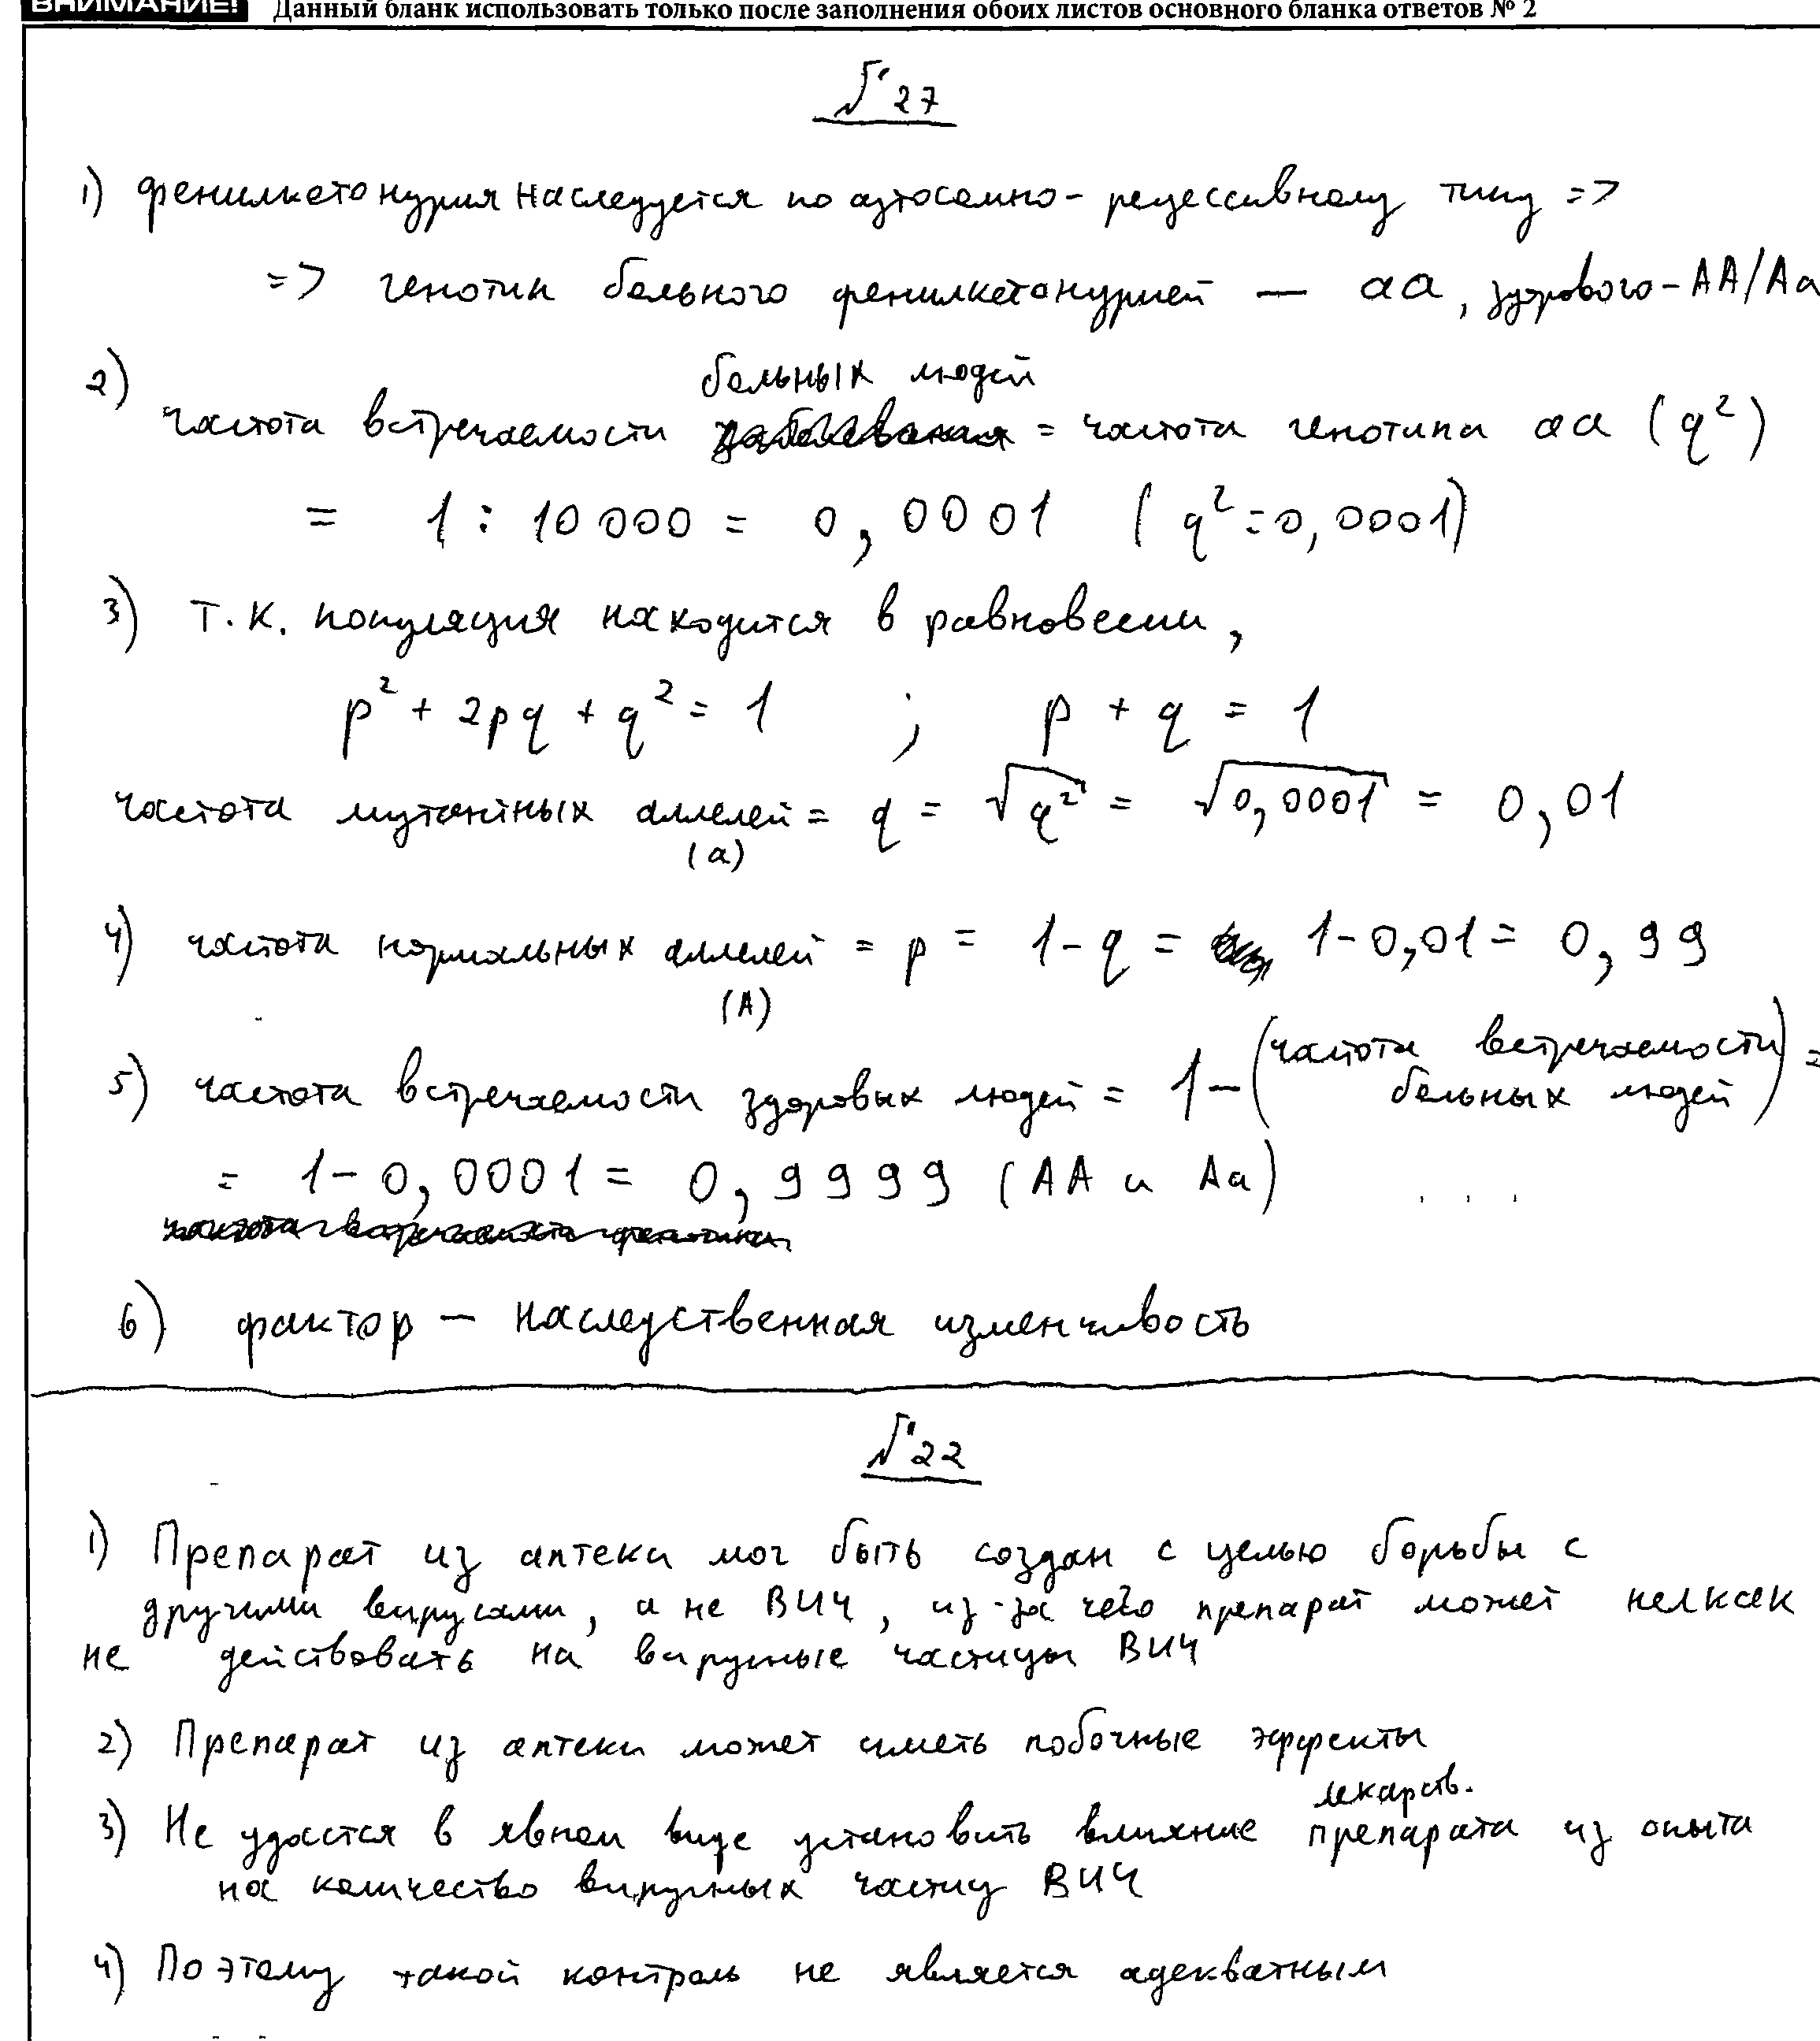 ВНИМАНИЕ! Данный бланк использовать только после заполнения обоих листов основного бланка ответов № 2
№27
1) фенилкетонурия наследуется по аутосомно-рецессивному типу =>
=> генотип больного фенилкетонурией — аа, здорового - АА/Аа
больных людей
2) частота встречаемости заболевания = частота генотипа аа (q²)
= 1 : 10 000 = 0,0001 (q²=0,0001)
3) Т.к. популяция находится в равновесии,
p² + 2pq + q² = 1 ; p + q = 1
частота мутантных аллелей = q = √q² = √0,0001 = 0,01
(а)
4) частота нормальных аллелей = p = 1 - q = 1 - 0,01 = 0,99
(А)
5) частота встречаемости здоровых людей = 1 - (частота встречаемости больных людей) =
= 1 - 0,0001 = 0,9999 (АА и Аа)
6) фактор — наследственная изменчивость
№22
1) Препарат из аптеки мог быть создан с целью борьбы с
другими вирусами, а не ВИЧ, из-за чего препарат может никак
не действовать на вирусные частицы ВИЧ
2) Препарат из аптеки может иметь побочные эффекты
лекарств.
3) Не удастся в явном виде установить влияние препарата из опыта
на количество вирусных частиц ВИЧ
4) Поэтому такой контроль не является адекватным